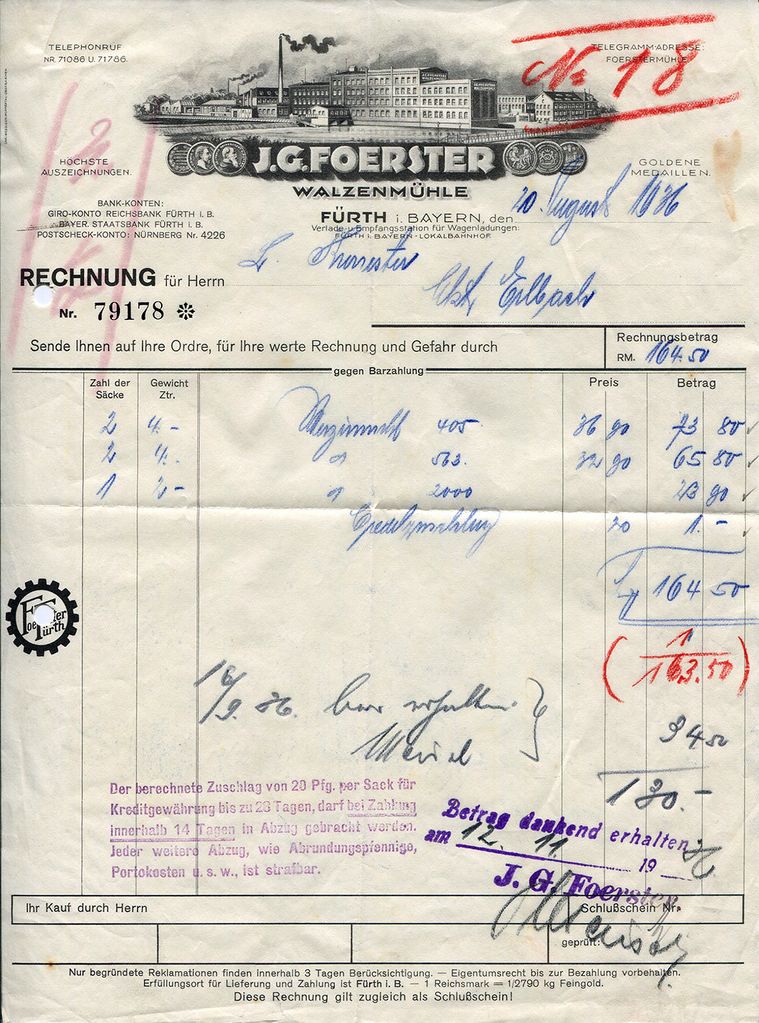 TELEPHONRUF
NR. 71086 U. 71786.
TELEGRAMM-ADRESSE:
FOERSTERMÜHLE
No 18
HÖCHSTE
AUSZEICHNUNGEN.
J.G.FOERSTER
WALZENMÜHLE
GOLDENE
MEDAILLEN.
BANK-KONTEN:
GIRO-KONTO REICHSBANK FÜRTH i. B.
BAYER. STAATSBANK FÜRTH i. B.
POSTSCHECK-KONTO: NÜRNBERG Nr. 4226
FÜRTH i. BAYERN, den 20. August 1936
Verlade- u. Empfangsstation für Wagenladungen:
FÜRTH i. BAYERN-LOKALBAHNHOF.
RECHNUNG für Herrn
Nr. 79178 ❋
Sende Ihnen auf Ihre Ordre, für Ihre werte Rechnung und Gefahr durch
Rechnungsbetrag
RM. 164.50
gegen Barzahlung
Zahl der Säcke Gewicht Ztr. Preis Betrag
2 4.- 405 36 90 73 80
2 4.- 563. 32 90 65 80
1 2.- 2000 23 90
20 1.-
164 50
1
(163.50)
Foerster Fürth
16/9. 36. bar erhalten
34 50
130.-
Der berechnete Zuschlag von 20 Pfg. per Sack für
Kreditgewährung bis zu 28 Tagen, darf bei Zahlung
innerhalb 14 Tagen in Abzug gebracht werden.
Jeder weitere Abzug, wie Abrundungspfennige,
Portokosten u. s. w., ist strafbar.
Betrag dankend erhalten
am 12. 11. 19 36
J. G. Foerster
Ihr Kauf durch Herrn
Schlußschein Nr.
geprüft:
Nur begründete Reklamationen finden innerhalb 3 Tagen Berücksichtigung. — Eigentumsrecht bis zur Bezahlung vorbehalten.
Erfüllungsort für Lieferung und Zahlung ist Fürth i. B. — 1 Reichsmark = 1/2790 kg Feingold.
Diese Rechnung gilt zugleich als Schlußschein!